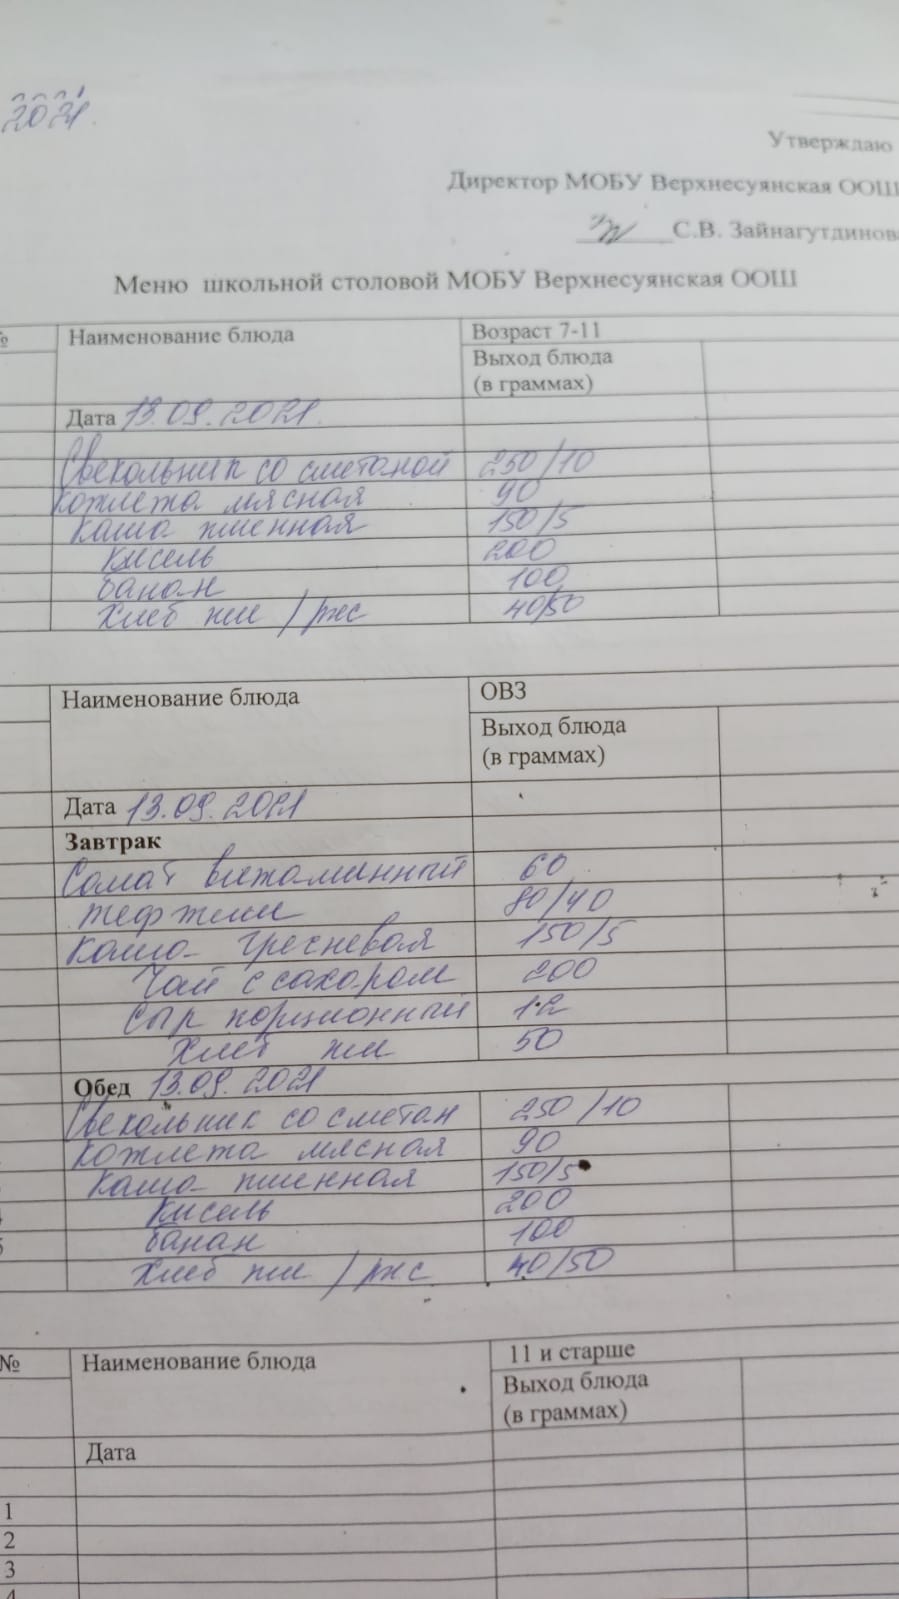 2021.
Утверждаю
Директор МОБУ Верхнесуянская ООШ
С.В. Зайнагутдинова
Меню школьной столовой МОБУ Верхнесуянская ООШ
№ Наименование блюда Возраст 7-11
Выход блюда
(в граммах)
Дата 13.09.2021
Свекольник со сметаной 250/10
Котлета мясная 90
Каша пшенная 150/5
Кисель 200
банан 100
Хлеб пш / рж 40/50
Наименование блюда ОВЗ
Выход блюда
(в граммах)
Дата 13.09.2021
Завтрак
Салат витаминный 60
тефтели 80/40
Каша гречневая 150/5
Чай с сахаром 200
Сыр порционный 12
Хлеб пш 50
Обед 13.09.2021
Свекольник со сметан 250/10
Котлета мясная 90
Каша пшенная 150/5
Кисель 200
банан 100
Хлеб пш / рж 40/50
№ Наименование блюда 11 и старше
Выход блюда
(в граммах)
Дата
1
2
3
4